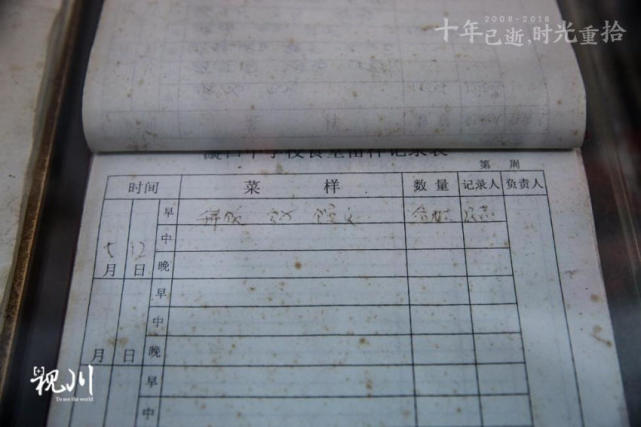 2008-2018
十年已逝,时光重拾
中学校食堂留样记录表
第 周
时间 菜样 数量 记录人 负责人
5月 12日 早
中
晚
早
中
月 日 晚
早
中
视川
To see the world